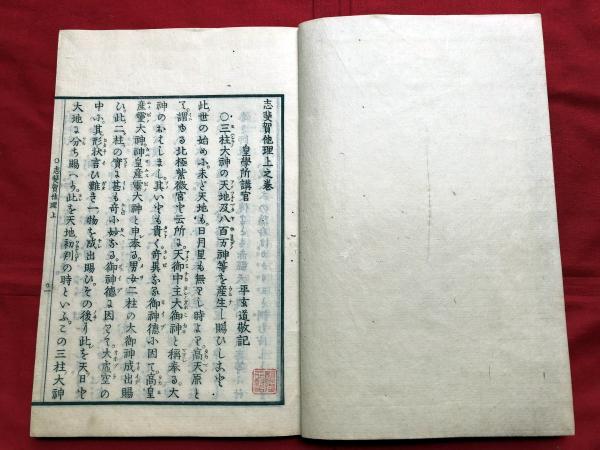 志斐賀他理上之巻
皇學所講官 平玄道敬記
〇三柱大神の天地及八百万神等を産生し賜ひしこと
此世の始め小未と天地も日月星も無りし時よ
謂ゆる北極紫微宮と云所よ天御中主大御神と稱奉る大
神のおはしまし其いとも貴く奇異なる御神德小因て高皇
產靈大神神皇產靈大神と申奉る男女二柱の大御神成出賜
ひ此二柱の實よ甚も奇小妙なる御神德よ因て大虛空の
中小其形狀言ひ難き一物を成出賜ひその後り此を天日と
大地よ分ち賜へり此を天地初判の時といふこの三柱大神
〇志斐賀他理 上